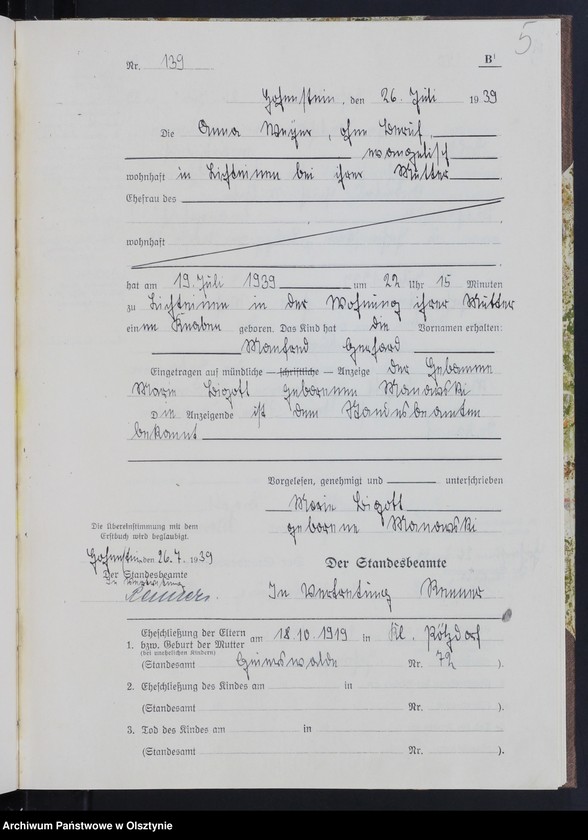 5
Nr. 139
B¹
Hohenstein, den 26. Juli 1939
Die Anna Meyer, ohne Beruf,
evangelisch
wohnhaft in Lichteinen bei ihrer Mutter
Ehefrau des
wohnhaft
hat am 19. Juli 1939 um 22 Uhr 15 Minuten
zu Lichteinen in der Wohnung ihrer Mutter
einen Knaben geboren. Das Kind hat die Vornamen erhalten:
Manfred Gerhard
Eingetragen auf mündliche – schriftliche – Anzeige der Hebamme
Marie Bigott geborenen Manowski
Die Anzeigende ist dem Standesbeamten
bekannt
Vorgelesen, genehmigt und unterschrieben
Marie Bigott
geborene Manowski
Die Übereinstimmung mit dem
Erstbuch wird beglaubigt.
Hohenstein den 26.7.1939
Der Standesbeamte
In Vertretung
Der Standesbeamte
In Vertretung Renner
1. Eheschließung der Eltern
bzw. Geburt der Mutter
(bei unehelichen Kindern)
am 18.10.1919 in Kl. Pötzdorf
(Standesamt Geierswalde Nr. 72).
2. Eheschließung des Kindes am in
(Standesamt Nr. ).
3. Tod des Kindes am in
(Standesamt Nr. ).
Archiwum Państwowe w Olsztynie